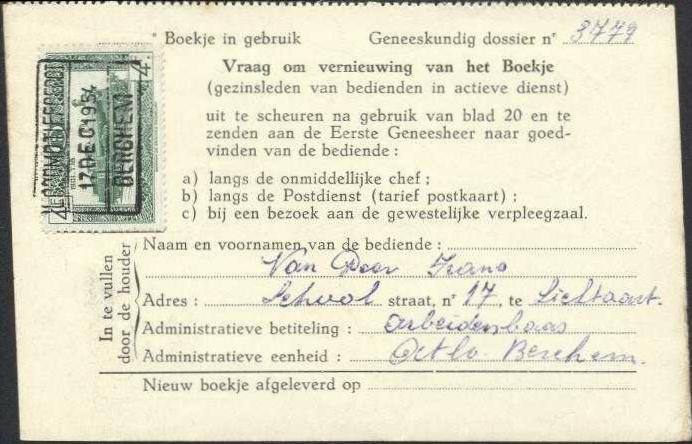 * Boekje in gebruik Geneeskundig dossier nʳ 3779
Vraag om vernieuwing van het Boekje
(gezinsleden van bedienden in actieve dienst)
uit te scheuren na gebruik van blad 20 en te
zenden aan de Eerste Geneesheer naar goed-
vinden van de bediende :
a) langs de onmiddellijke chef ;
b) langs de Postdienst (tarief postkaart) :
c) bij een bezoek aan de gewestelijke verpleegzaal.
4F
17 DEC 1954
BERCHEM
In te vullen
door de houder
Naam en voornamen van de bediende :
Van Frans
Adres : School straat, nʳ 17, te Lichtaart.
Administratieve betiteling :
Administratieve eenheid : Berchem.
Nieuw boekje afgeleverd op